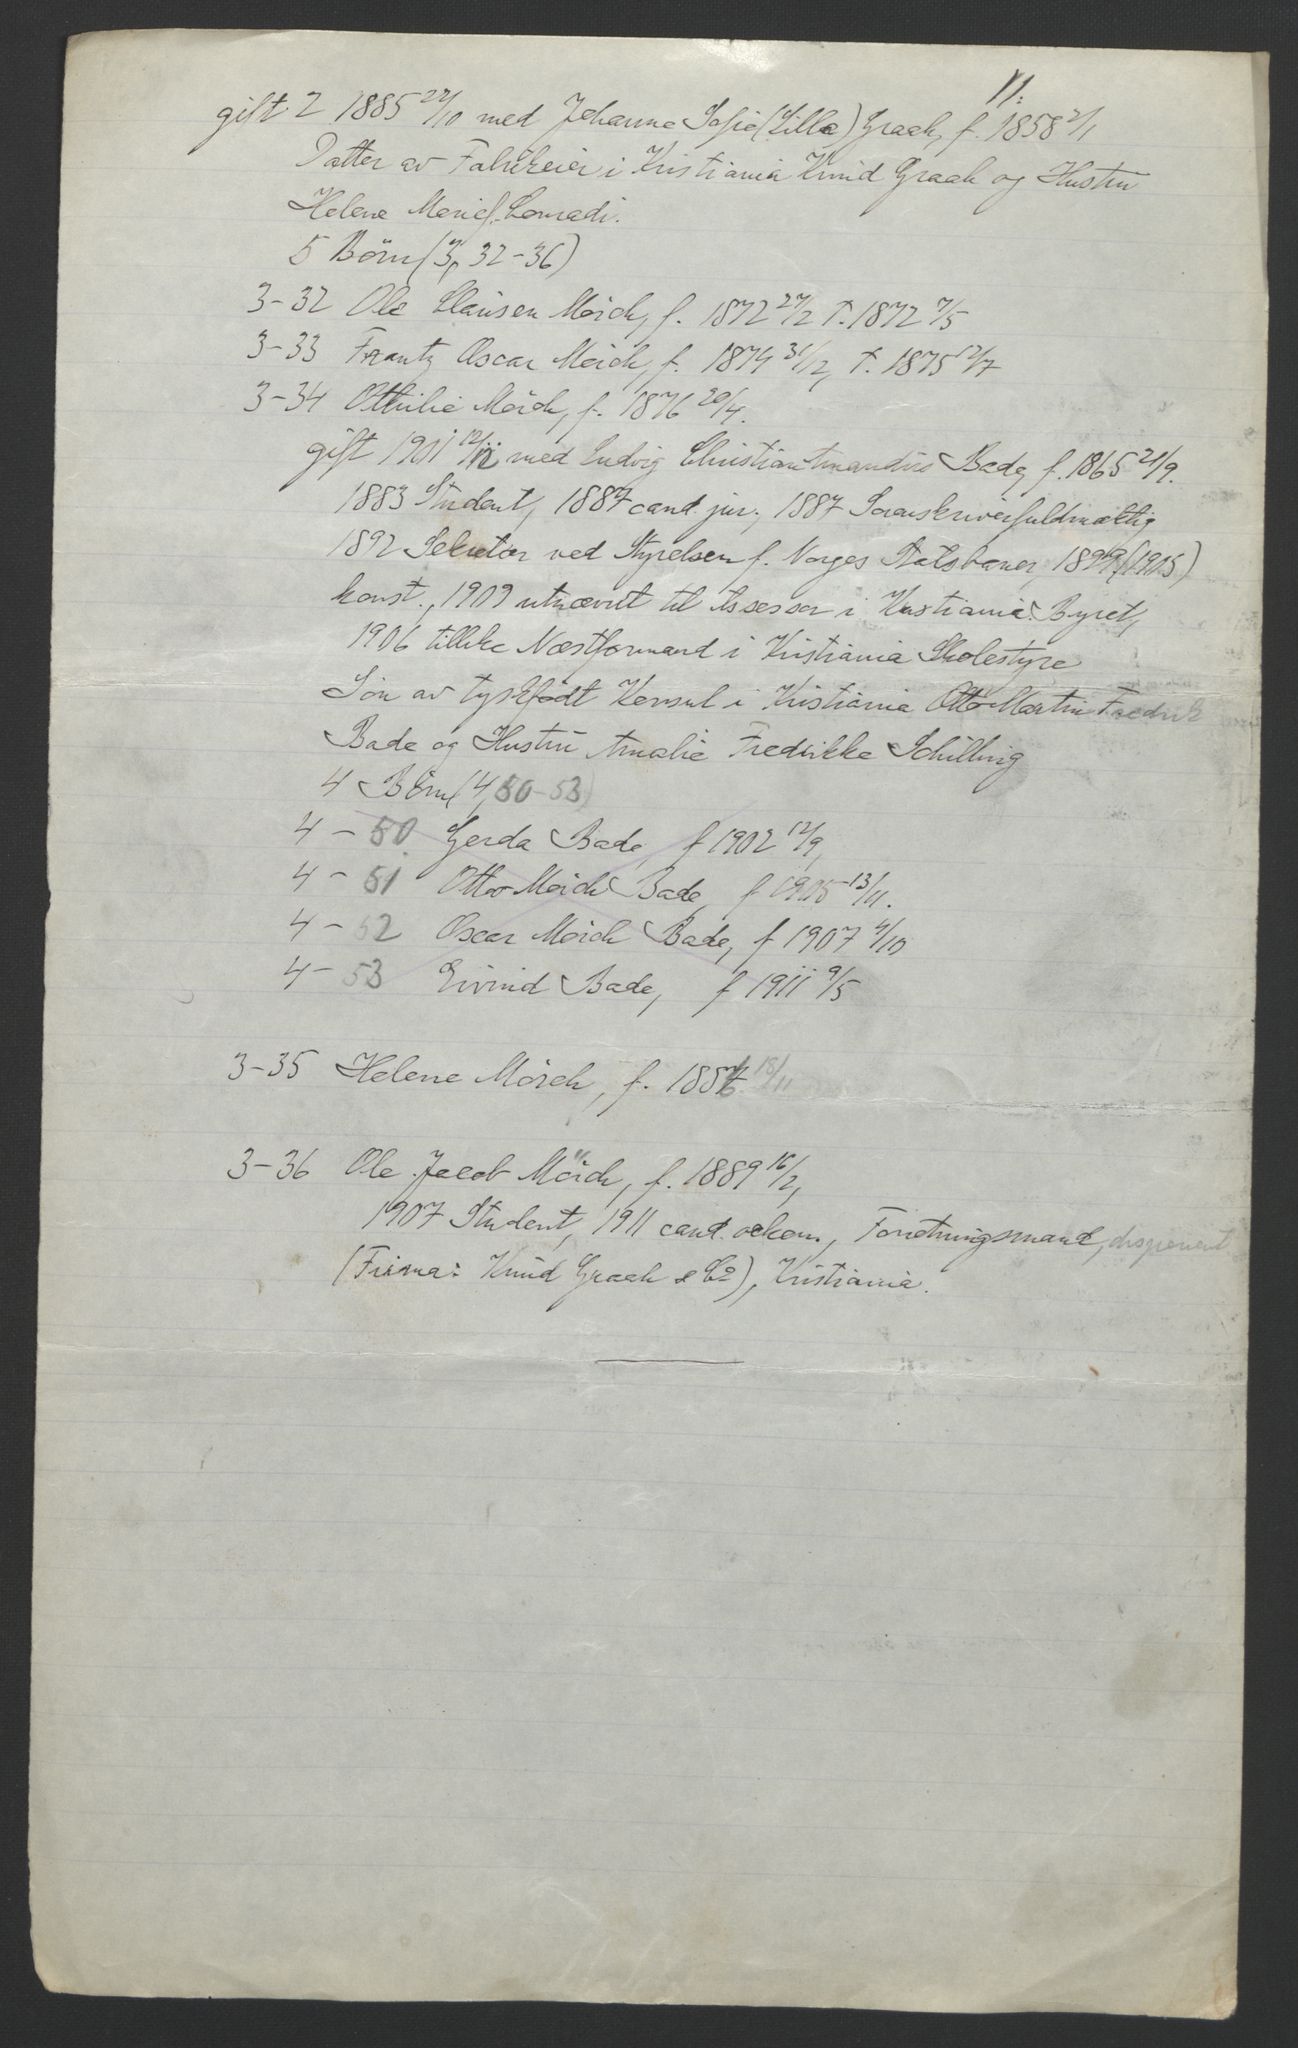 11.
gift 2 1885 27/10 med Johanne Sofie (Lilla) Graah, f. 1858 2/1
Datter av Fabrikeier i Kristiania Knud Graah og Hustru
Helene Marie f. Conradi.
5 Börn (3, 32-36)
3-32 Ole Clausen Mörch, f. 1872 27/2 †. 1872 7/5
3-33 Frantz Oscar Mörch, f. 1874 31/12, †. 1875 12/7
3-34 Othilie Mörch, f. 1876 20/4.
gift 1901 12/12 med Ludvig Christian Amandus Bade, f. 1865 21/9.
1883 Student, 1887 cand. jur., 1887 Sorenskriverfuldmægtig
1892 Sekretær ved Styrelsen f. Norges Statsbaner, 1899 (1905)
konst., 1909 utnævnt til Assessor i Kristiania Byret,
1906 tillike Næstformand i Kristiania Skolestyre
Sön av tyskfödt Konsul i Kristiania Otto Martin Fredrik
Bade og Hustru Amalie Fredrikke Schilling
4 Börn (4, 50-53)
4 - 50 Gerda Bade, f 1902 12/9,
4 - 51 Otto Mörch Bade, f 1905 13/11.
4 - 52 Oscar Mörch Bade, f 1907 4/10
4 - 53 Eivind Bade, f 1911 9/5
3-35 Helene Mörch, f. 1886 18/11
3-36 Ole Jacob Mörch, f. 1889 16/2,
1907 Student, 1911 cand. oekon., Forretningsmand, disponent
(Firma: Knud Graah & Co), Kristiania.